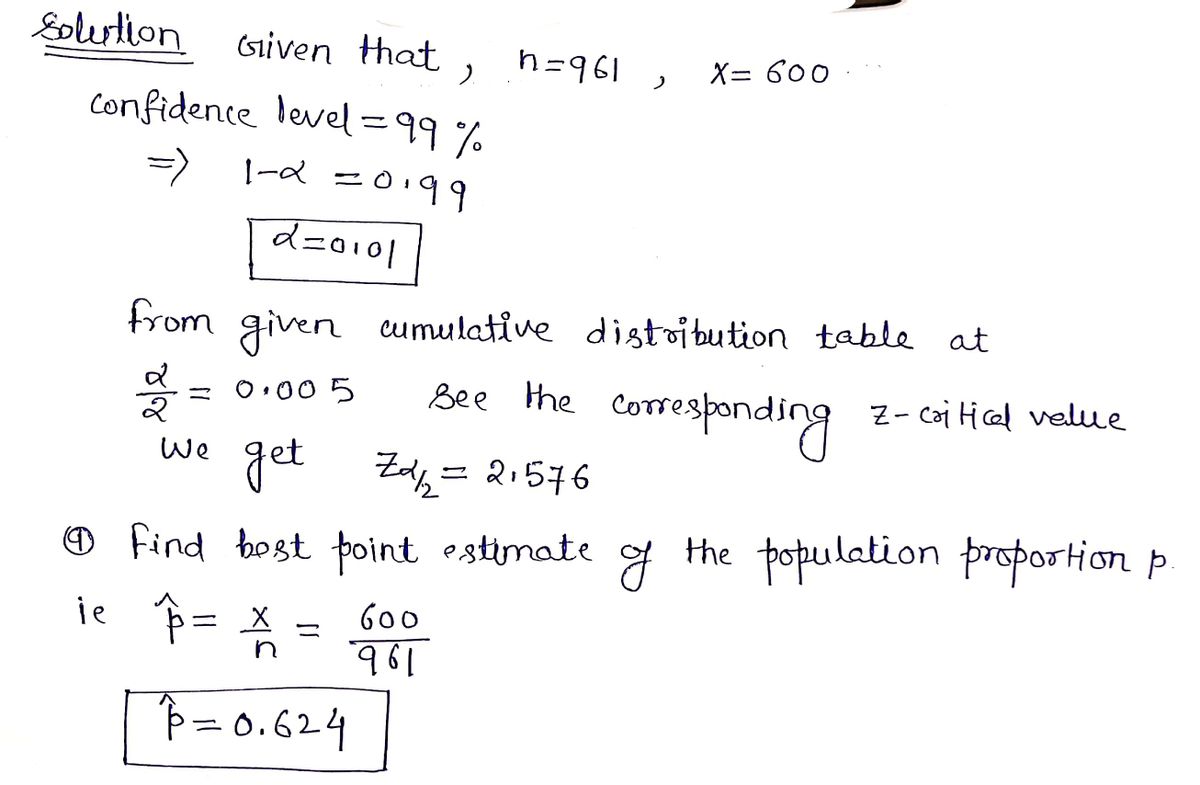 Solution Given that , n=961 , X= 600
confidence level = 99 %
=> 1-α = 0.99
α=0.01
from given cumulative distribution table at
α/2 = 0.005 see the corresponding z-critical value
We get Zα/2 = 2.576
① find best point estimate of the population proportion p.
ie p̂ = X/n = 600/961
p̂ = 0.624